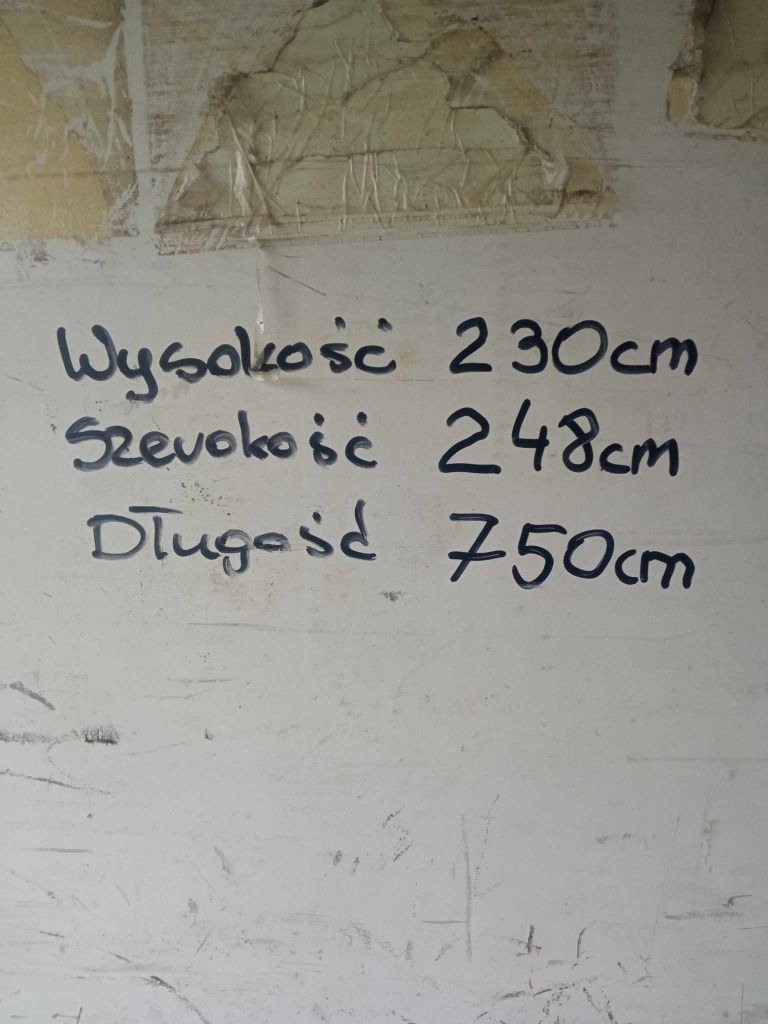 Wysokość 230cm
Szerokość 248cm
Długość 750cm